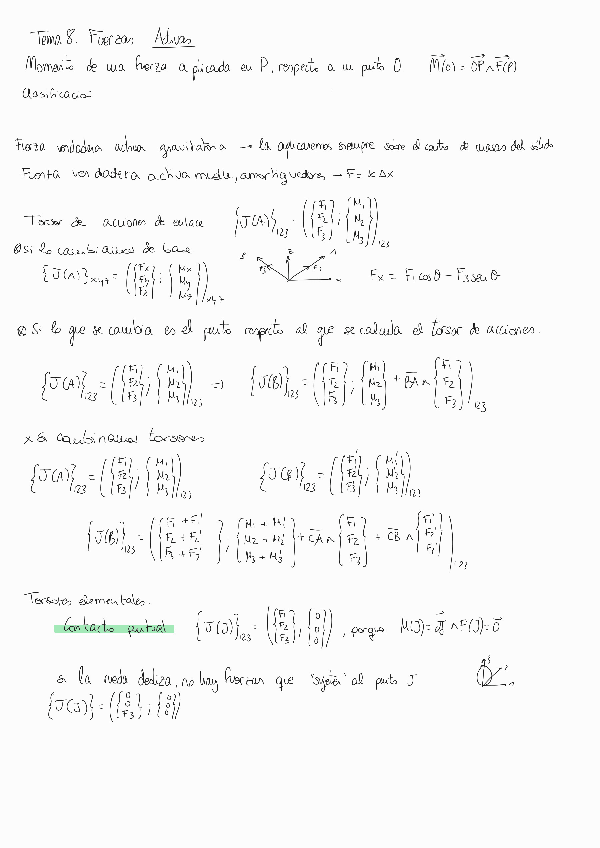 Tema 8. Fuerzas Activas
Momento de una fuerza aplicada en P, respecto a un punto O M⃗(O) = OP⃗ ∧ F⃗(P)
Clasificación
Fuerza verdadera activa gravitatoria → la aplicaremos siempre sobre el centro de masas del sólido
Fuerza verdadera activa muelle, amortiguadores → F = k Δx
Torsor de acciones de enlace {J(A)}₁₂₃ = ({F₁ F₂ F₃} ; {M₁ M₂ M₃})₁₂₃
si lo cambiamos de base
{J(A)}xyz = ({Fx Fy Fz} ; {Mx My Mz})xyz Fx = F₁ cosθ − F₃ senθ
Si lo que se cambia es el punto respecto al que se calcula el torsor de acciones.
{J(A)}₁₂₃ = ({F₁ F₂ F₃} ; {M₁ M₂ M₃})₁₂₃ => {J(B)}₁₂₃ = ({F₁ F₂ F₃} ; {M₁ M₂ M₃} + BA ∧ {F₁ F₂ F₃})₁₂₃
x Si combinamos torsores
{J(A)}₁₂₃ = ({F₁ F₂ F₃} ; {M₁ M₂ M₃})₁₂₃ {J(B)}₁₂₃ = ({F₁' F₂' F₃'} ; {M₁' M₂' M₃'})₁₂₃
{J(B)}₁₂₃ = ({F₁ + F₁' F₂ + F₂' F₃ + F₃'} ; {M₁ + M₁' M₂ + M₂' M₃ + M₃'} + CA ∧ {F₁ F₂ F₃} + CB ∧ {F₁' F₂' F₃'})₁₂₃
Torsores elementales.
Contacto puntual {J(J)}₁₂₃ = ({F₁ F₂ F₃} ; {0 0 0}) , porque M(J) = ∧ F(J) = 0⃗
si la rueda desliza, no hay fuerzas que "sujeten" al punto J
{J(J)} = ({0 0 F₃} ; {0 0 0})